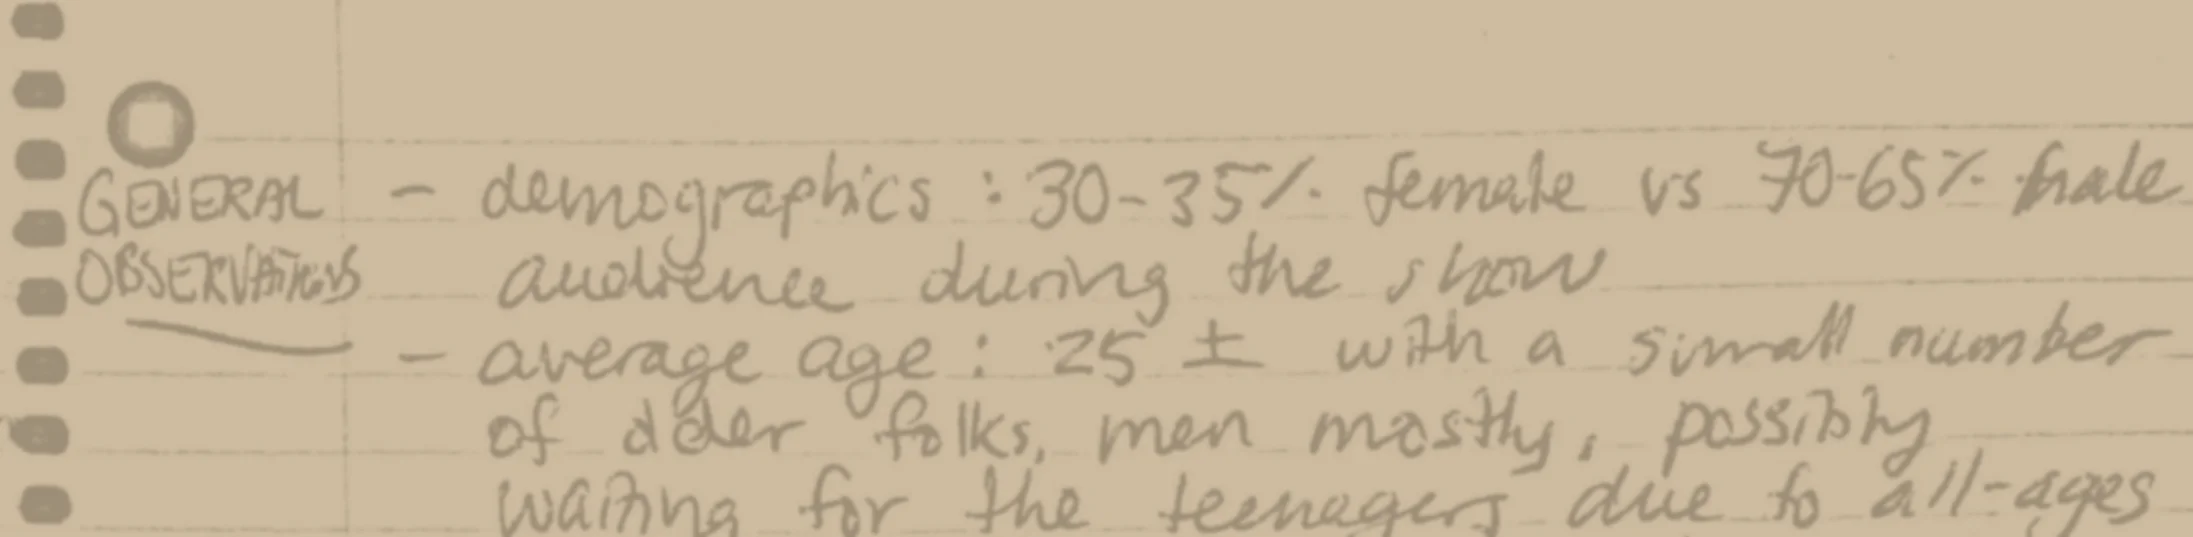 GENERAL - demographics : 30-35% female vs 70-65% male
OBSERVATIONS audience during the show
- average age : 25 ± with a small number
of older folks, men mostly, possibly
waiting for the teenagers due to all-ages